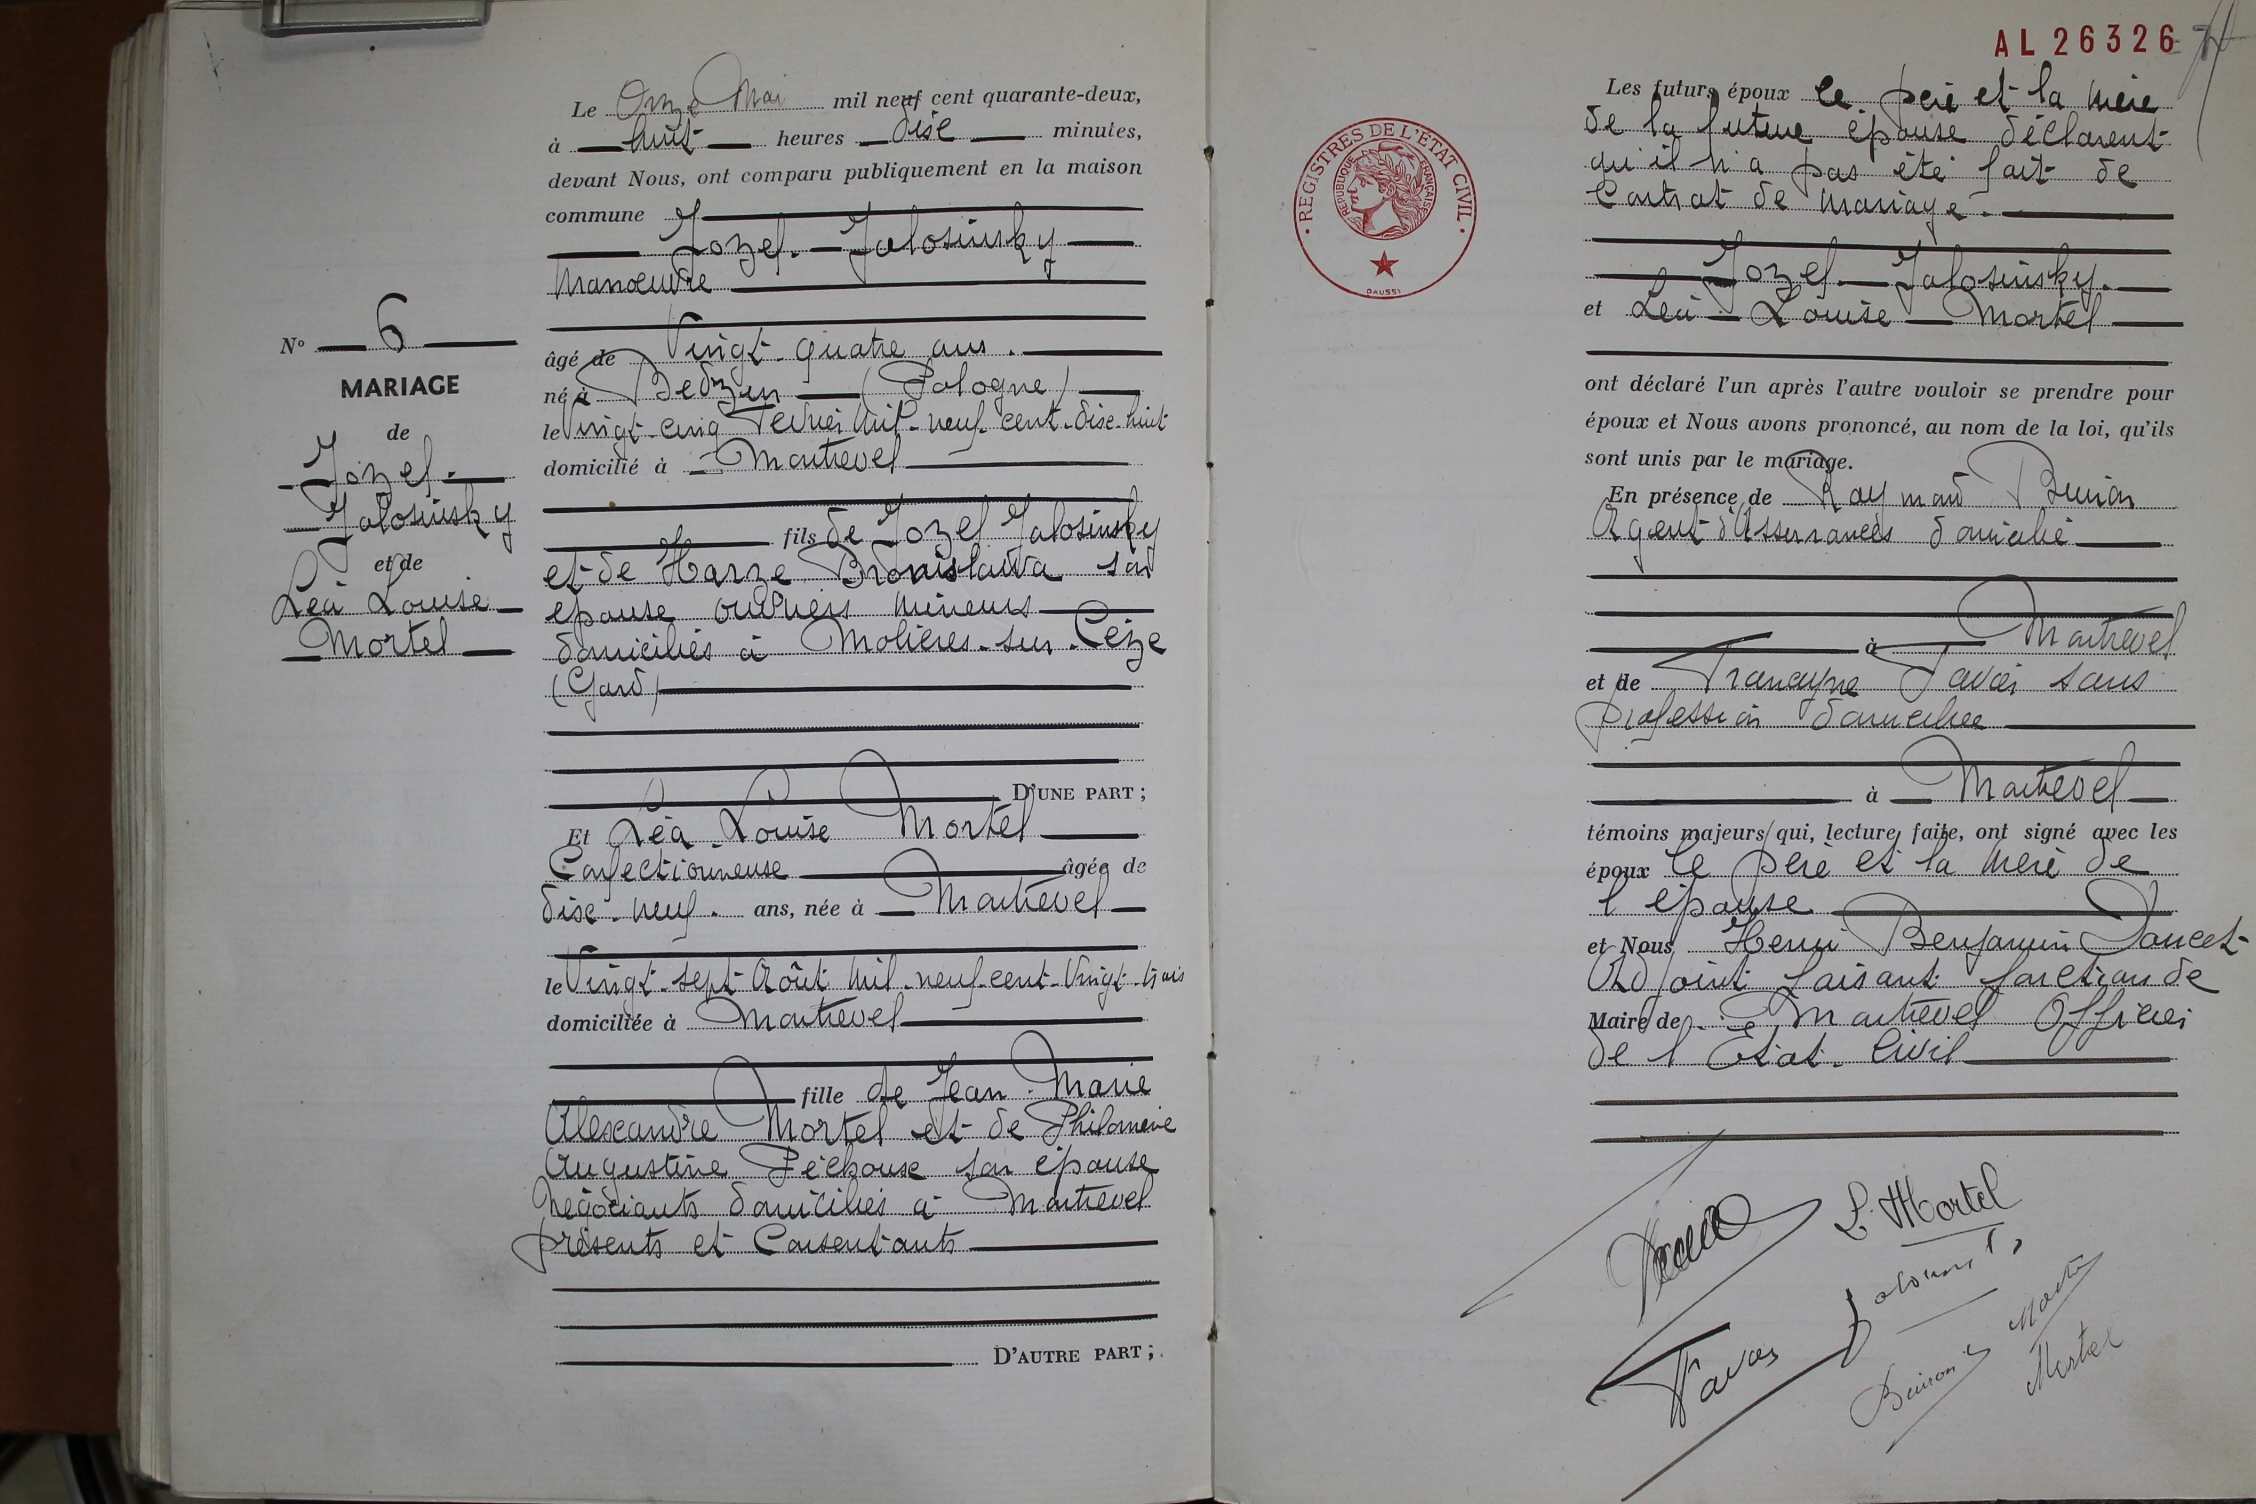 Le Onze Mai mil neuf cent quarante-deux,
à huit heures dix minutes,
devant Nous, ont comparu publiquement en la maison
commune
Jozef Jalosinsky
Manœuvre
N° 6
MARIAGE
de
Jozef
Jalosinsky
et de
Léa Louise
Mortel
âgé de Vingt-quatre ans.
né à Bedzen (Pologne)
le Vingt-cinq Février Mil-neuf-cent-dix-huit
domicilié à Montrevel
fils de Jozef Jalosinsky
et de Harze Bronislawa son
épouse ouvriers mineurs
domiciliés à Molières-sur-Cèze
(Gard)
D'UNE PART;
Et Léa Louise Mortel
Confectionneuse âgée de
dix-neuf ans, née à Montrevel
le Vingt-sept Août Mil-neuf-cent-Vingt-trois
domiciliée à Montrevel
fille de Jean Marie
Alexandre Mortel et de Philomène
Augustine Péchoux son épouse
négociants domiciliés à Montrevel
présents et Consentants
D'AUTRE PART;
AL 26326
REGISTRES DE L'ETAT CIVIL
REPUBLIQUE FRANÇAISE
DAUSSI
Les futurs époux le père et la mère
de la future épouse déclarent
qu'il n'a pas été fait de
Contrat de mariage.
Jozef Jalosinsky.
et Léa Louise Mortel
ont déclaré l'un après l'autre vouloir se prendre pour
époux et Nous avons prononcé, au nom de la loi, qu'ils
sont unis par le mariage.
En présence de Raymond Buiron
Agent d'Assurances domicilié
à Montrevel
et de Favier sans
profession domiciliée
à Montrevel
témoins majeurs qui, lecture faite, ont signé avec les
époux le père et la mère de
l'épouse
et Nous Henri Benjamin Doucet
Adjoint faisant fonction de
Maire de Montrevel Officier
de l'État-Civil
L. Mortel
Buiron
Mortel